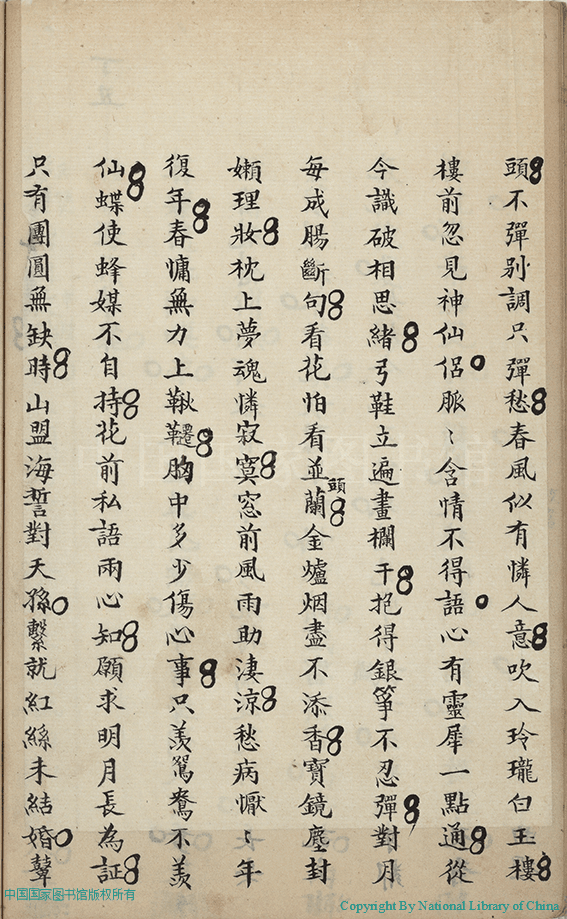 頭不彈别調只彈愁春風似有憐人意吹入玲瓏白玉樓
樓前忽見神仙侶脈〻含情不得語心有靈犀一點通從
今識破相思緒弓鞋立遍畫欄干抱得銀箏不忍彈對月
每成腸斷句看花怕看並頭蘭金爐烟盡不添香寶鏡塵封
嬾理妝枕上夢魂憐寂寞窓前風雨助淒涼愁病懨〻年
復年春慵無力上鞦韆胸中多少傷心事只羡鴛鴦不羡
仙蝶使蜂媒不自持花前私語兩心知願求明月長為証
只有團圓無缺時山盟海誓對天孫繫就紅絲未結婚聲
中国国家图书馆
中国国家图书馆版权所有
Copyright By National Library of China